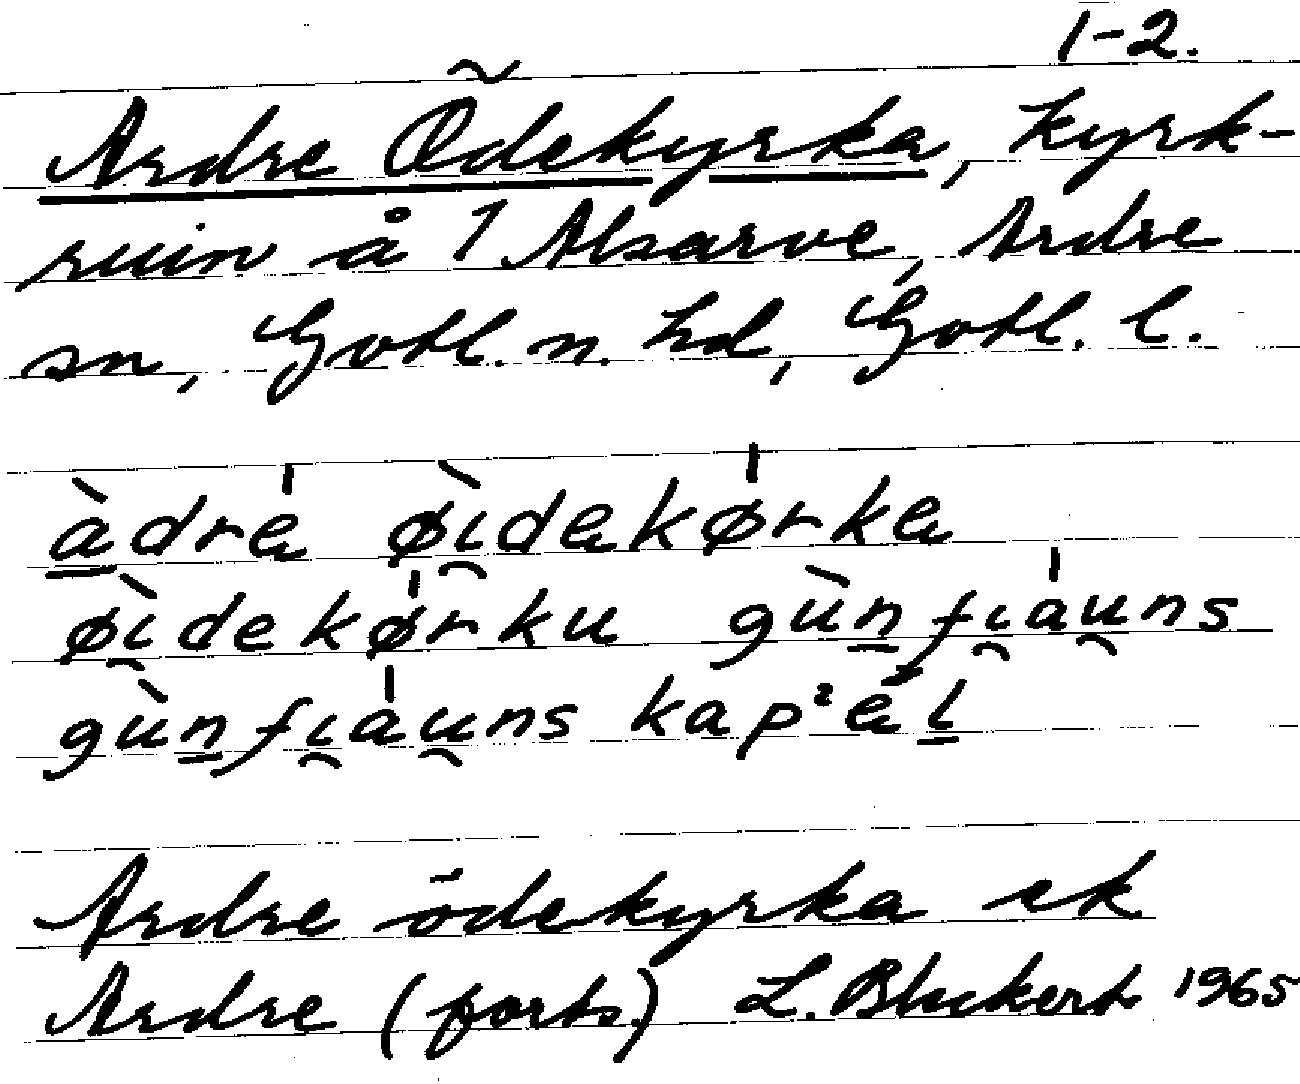 1-2.
Ardre Ödekyrka, kyrk-
ruin å 1 Alsarve, Ardre
sn, Gotl. n. hd, Gotl. l.
àdrá øìdakørka
øìdekørku gùnfɩauns
gùnfɩauns kapˀál
Ardre ödekyrka ek
Ardre (forts.) L. Bluckert 1965